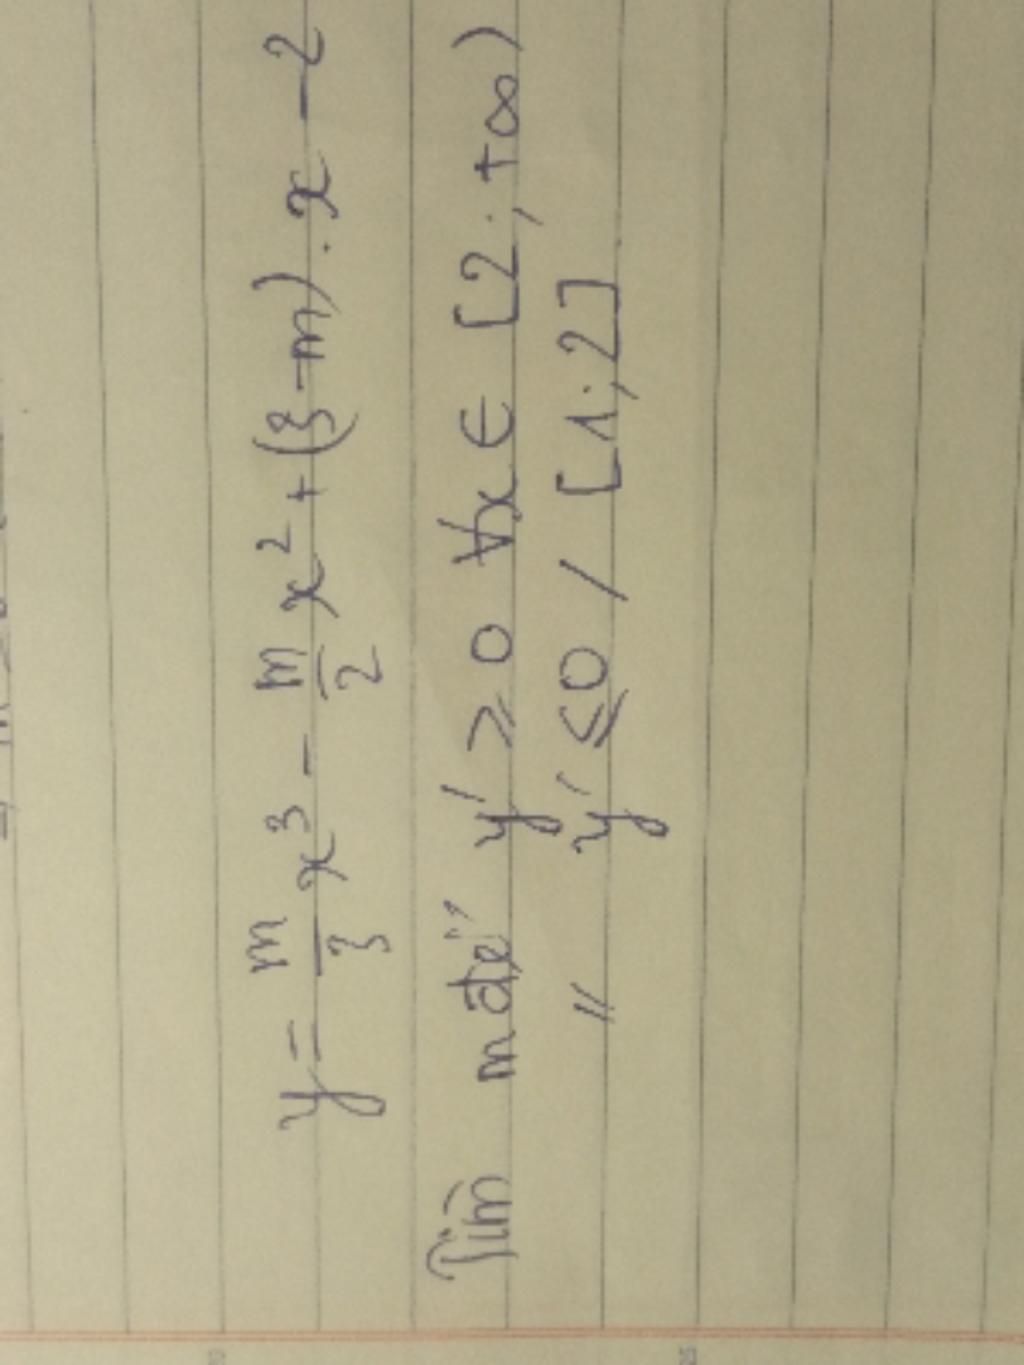 y = m/3 x³ - m/2 x² + (3-m).x - 2
Tìm m để y' ≥ 0 ∀x ∈ [2; +∞)
〃 y' ≤ 0 / [1; 2]